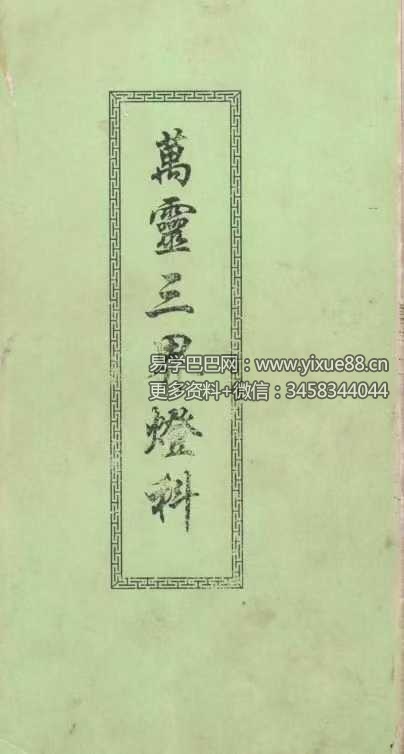 萬靈三界燈科
易学巴巴网：www.yixue88.cn
更多资料+微信：3458344044